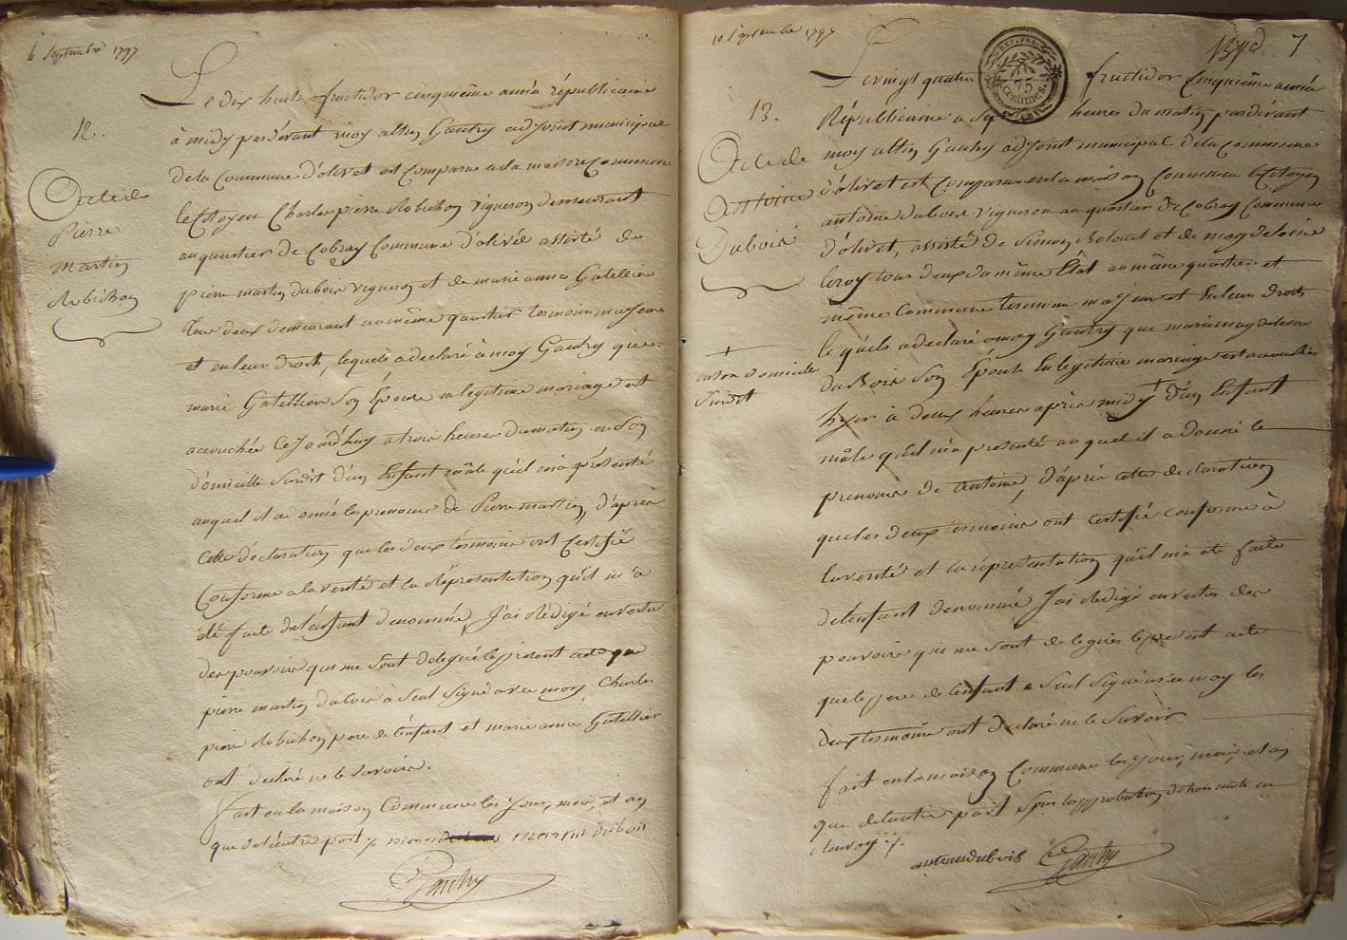 6 Septembre 1797
Le dix huit fructidor cinquième année républicaine
12.
à midy pardevant moy Gautry adjoint municipal
de la Commune d'olivet est comparu a la maison Commune
Acte de
le Citoyen Charles pierre Robichon vigneron demeurant
Pierre
au quartier de Cobray Commune d'olivet assisté de
Martin
pierre martin dubois vigneron et de marie anne Gatellier
Robichon
tous deux demeurant au même quartier temoins majeurs
et en leur droits, lequels a declaré à moy Gautry que
marie Gatellier Son Épouse en legitime mariage est
accouchée Ce jourd'huy a trois heures du matin en Son
domicille Susdit d'un Enfant mâle qu'il m'a présenté
auquel il a donné les prenoms de Pierre martin, d'après
Cette déclaration que les deux temoins ont Certifié
Conforme a la verité et la Représentation qu'il m'a
été faite de l'enfant denommé, J'ai Rédigé en vertu
des pouvoirs qui me Sont délégué le présent acte que
pierre martin dubois à Seul Signé avec moy Charles
pierre Robichon pere de l'enfant et marie anne Gatellier
ont declaré ne le Savoir.
fait en la maison Commune les jour, mois, et an
que de l'autre part martin dubois
Gautry
10 Septembre 1797
7
Le vingt quatre fructidor Cinquième année
13.
Républicaine a Sept heures du matin pardevant
Acte de
moy Gautry adjoint municipal de la Commune
Antoine
d'olivet est Comparu en la maison Commune le Citoyen
Dubois
antoine dubois vigneron au quartier de Cobray Commune
d'olivet, assisté de Simon et de magdeleine
leroy tous deux du même État au même quartier et
même Commune temoins majeurs et En leur Droits
lequels a declaré a moy Gautry que marie magdeleine
+
en son domicille
Susdit
Son Épouse En legitime mariage est accouchée
hyer à deux heures après midy + d'un Enfant
mâle qu'il m'a presenté auquel il a Donné le
prenoms de Antoine, d'après cette declaration
que les deux temoins ont certifié conforme à
la verité et la représentation qu'il m'a été faite
de l'enfant denommé J'ai Redigé en vertu des
pouvoirs qui me Sont delegués le present acte
que le pere de l'enfant a Seul Signé avec moy les
deux temoins ont Declaré ne le Savoir
fait en la maison Commune les jour, mois, et an
que de l'autre part
antoine dubois Gautry